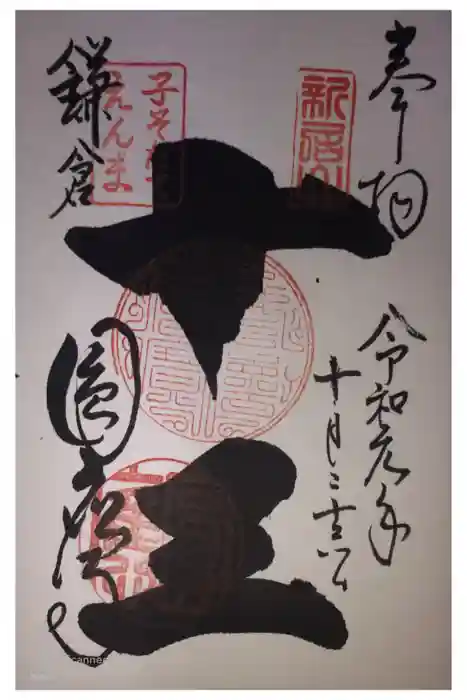 奉拝
新居山
令和元年
十月二十六日
十王
子そだて
えんま
鎌倉
圓應寺